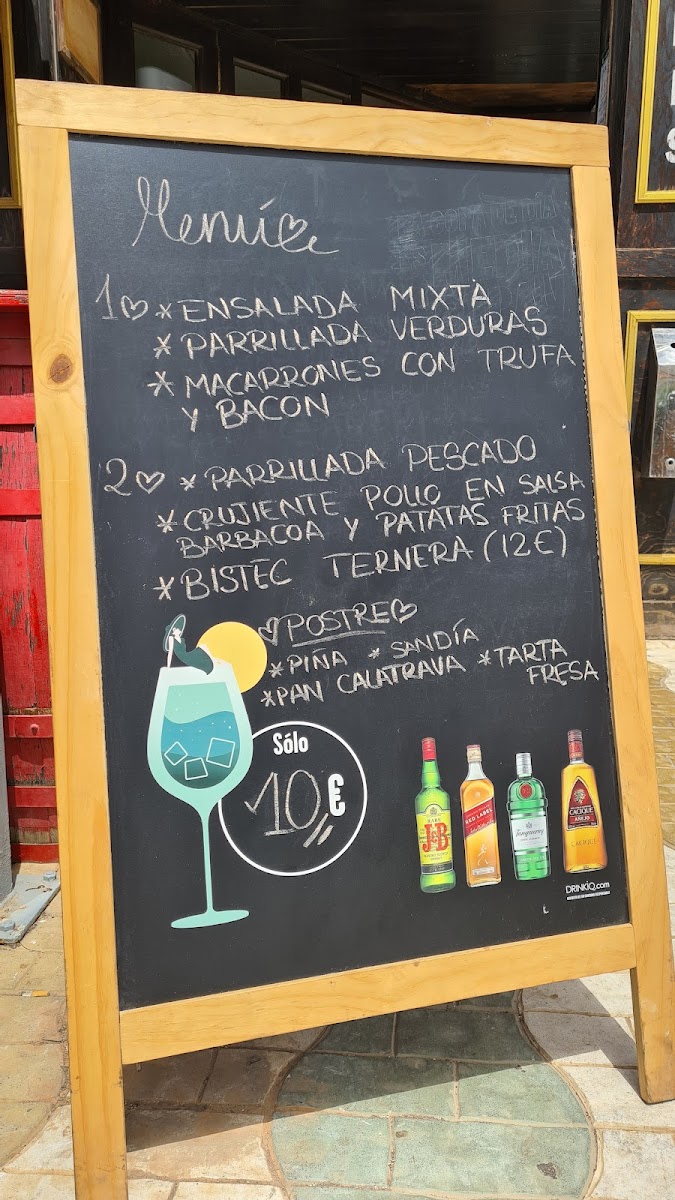 Menú
1 * ENSALADA MIXTA
* PARRILLADA VERDURAS
* MACARRONES CON TRUFA
Y BACON
2 * PARRILLADA PESCADO
* CRUJIENTE POLLO EN SALSA
BARBACOA Y PATATAS FRITAS
* BISTEC TERNERA (12€)
POSTRE
* PIÑA * SANDÍA
* PAN CALATRAVA * TARTA
FRESA
Sólo
10€
J&B
RED LABEL
Tanqueray
CACIQUE
AÑEJO
CACIQUE
DRINKiQ.com